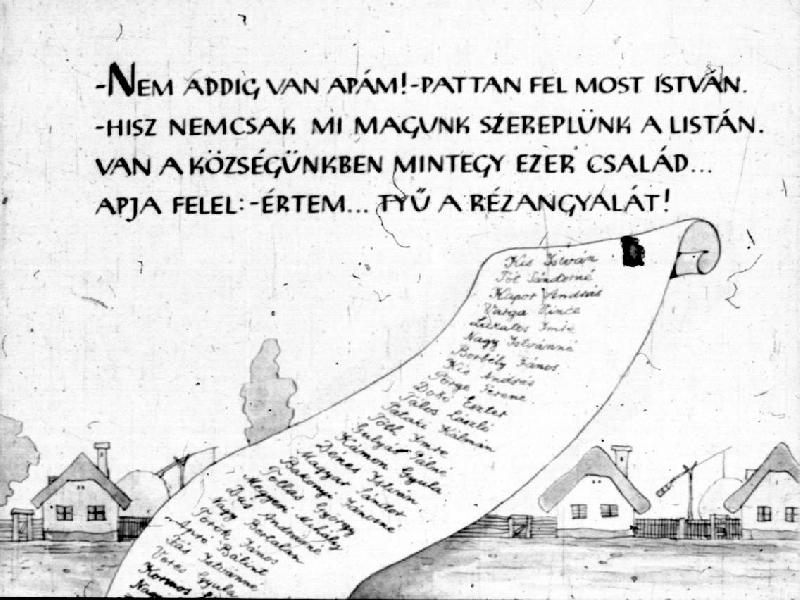 -NEM ADDIG VAN APÁM!-PATTAN FEL MOST ISTVÁN.
-HISZ NEMCSAK MI MAGUNK SZEREPLÜNK A LISTÁN.
VAN A KÖZSÉGÜNKBEN MINTEGY EZER CSALÁD...
APJA FELEL:-ÉRTEM... TYŰ A RÉZANGYALÁT!
Kis István
Tót Sándorné
Kapor András
Varga Vince
Lakatos Imre
Nagy Istvánné
Borbély János
Kis András
Pörge Ferenc
Dobó Eszter
Tálos László
Pataki Kálmán
Tóth Imre
Gulyás Pálné
Kámon Gyula
Dénes István
Magyar Sándor
Bakonyi Jánosné
Pollás György
Magyari Mihály
Dós Andrásné
Nagy Bertalan
Török János
Apró Bálint
Vas Istvánné
Veres Gyula
Kormos
Nagy